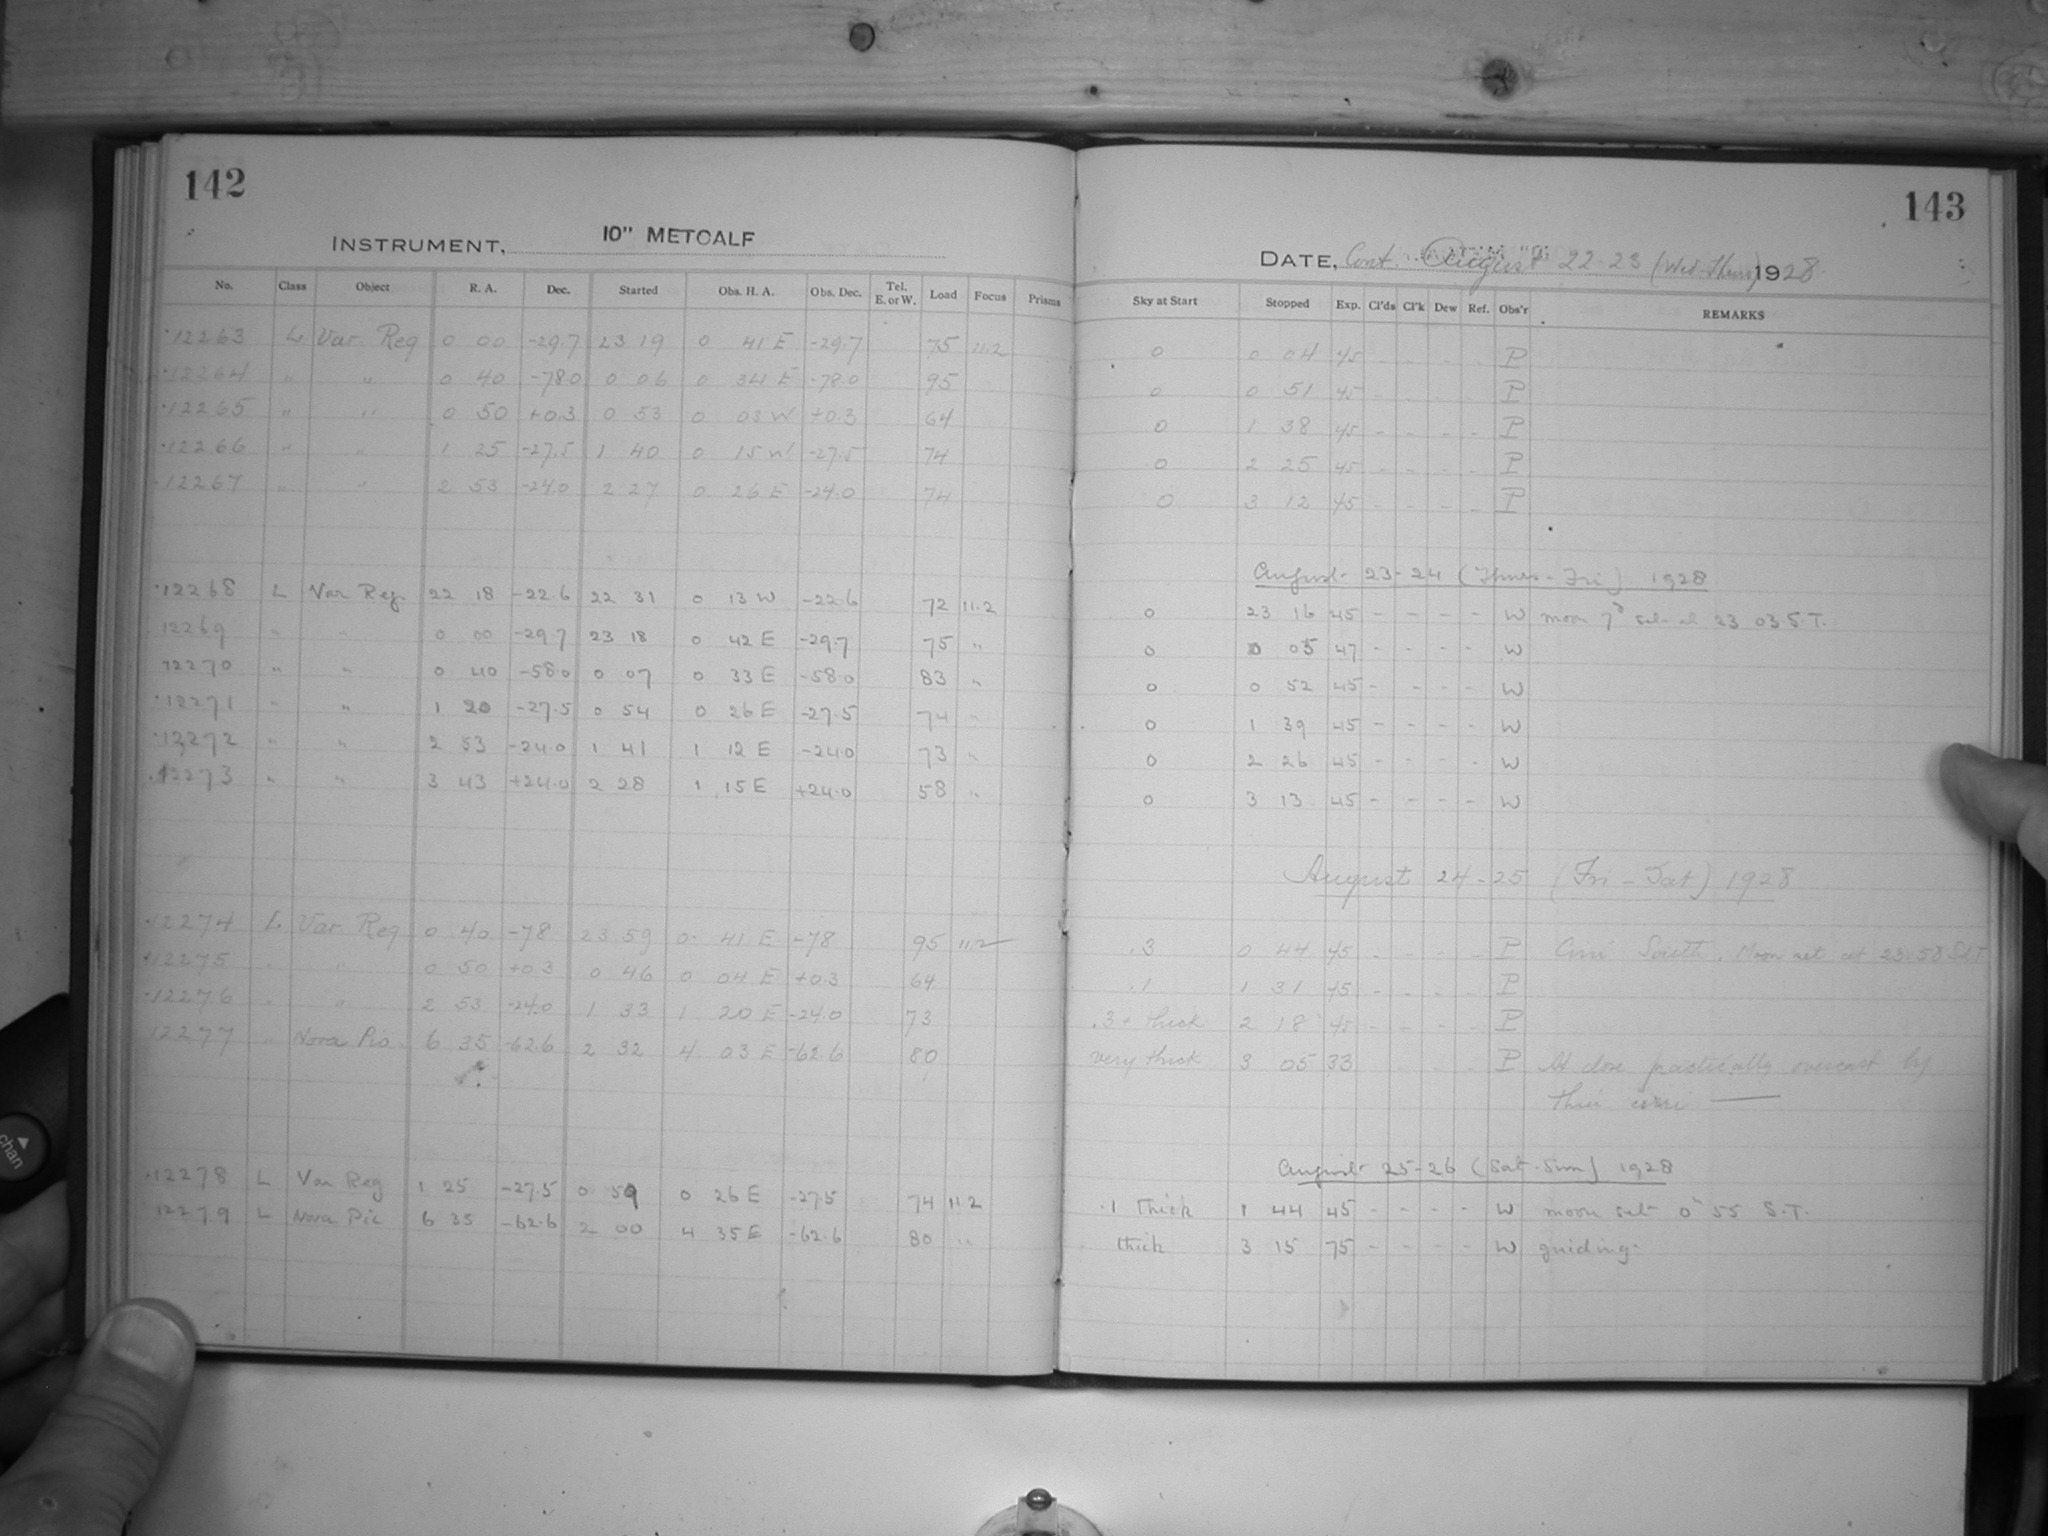 142
INSTRUMENT, 10" METCALF
No. Class Object R. A. Dec. Started Obs. H. A. Obs. Dec. Tel. E. or W. Load Focus Prisms
12263 L Var. Reg 0 00 -29.7 23 19 0 41 E -29.7 75 11.2
12264 " " 0 40 -78.0 0 06 0 34 E -78.0 95
12265 " " 0 50 +0.3 0 53 0 03 W +0.3 64
12266 " " 1 25 -27.5 1 40 0 15 W -27.5 74
12267 " " 2 53 -24.0 2 27 0 26 E -24.0 74
12268 L Var Reg. 22 18 -22.6 22 31 0 13 W -22.6 72 11.2
12269 " " 0 00 -29.7 23 18 0 42 E -29.7 75 "
12270 " " 0 40 -58.0 0 07 0 33 E -58.0 83 "
12271 " " 1 20 -27.5 0 54 0 26 E -27.5 74 "
12272 " " 2 53 -24.0 1 41 1 12 E -24.0 73 "
12273 " " 3 43 +24.0 2 28 1 15 E +24.0 58 "
12274 L Var Reg 0 40 -78 23 59 0 41 E -78 95 11.2
12275 " " 0 50 +0.3 0 46 0 04 E +0.3 64
12276 " " 2 53 -24.0 1 33 1 20 E -24.0 73
12277 " Nova Pic. 6 35 -62.6 2 32 4 03 E -62.6 80
12278 L Var Reg 1 25 -27.5 0 59 0 26 E -27.5 74 11.2
12279 L Nova Pic 6 35 -62.6 2 00 4 35 E -62.6 80 "
143
DATE, Cont. August 22-23 (Wed-Thurs) 1928
Sky at Start Stopped Exp. Cl'ds Cl'k Dew Ref. Obs'r REMARKS
0 0 04 45 - - - - P
0 0 51 45 - - - - P
0 1 38 45 - - - - P
0 2 25 45 - - - - P
0 3 12 45 - - - - P
August 23-24 (Thurs-Fri) 1928
0 23 16 45 - - - - W moon 7d set at 23 03 S.T.
0 0 05 47 - - - - W
0 0 52 45 - - - - W
0 1 39 45 - - - - W
0 2 26 45 - - - - W
0 3 13 45 - - - - W
August 24-25 (Fri-Sat) 1928
.3 0 44 45 - - - - P Cirri South. Moon set at 23:58 Sid T
.1 1 31 45 - - - - P
.3+ thick 2 18 45 - - - - P
very thick 3 05 33 - - - P At close practically overcast by
August 25-26 (Sat-Sun) 1928
.1 Thick 1 44 45 - - - - W moon set 0h 55 S.T.
thick 3 15 75 - - - - W guiding.
chan